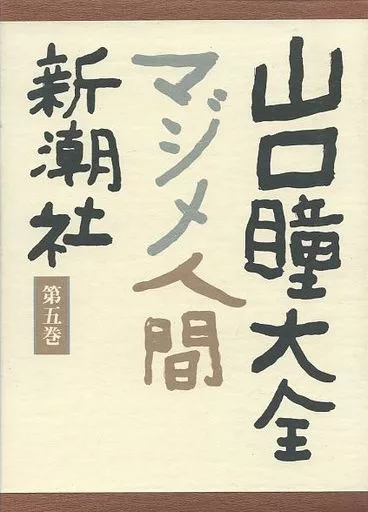 山口瞳大全
マジメ人間
新潮社
第五巻